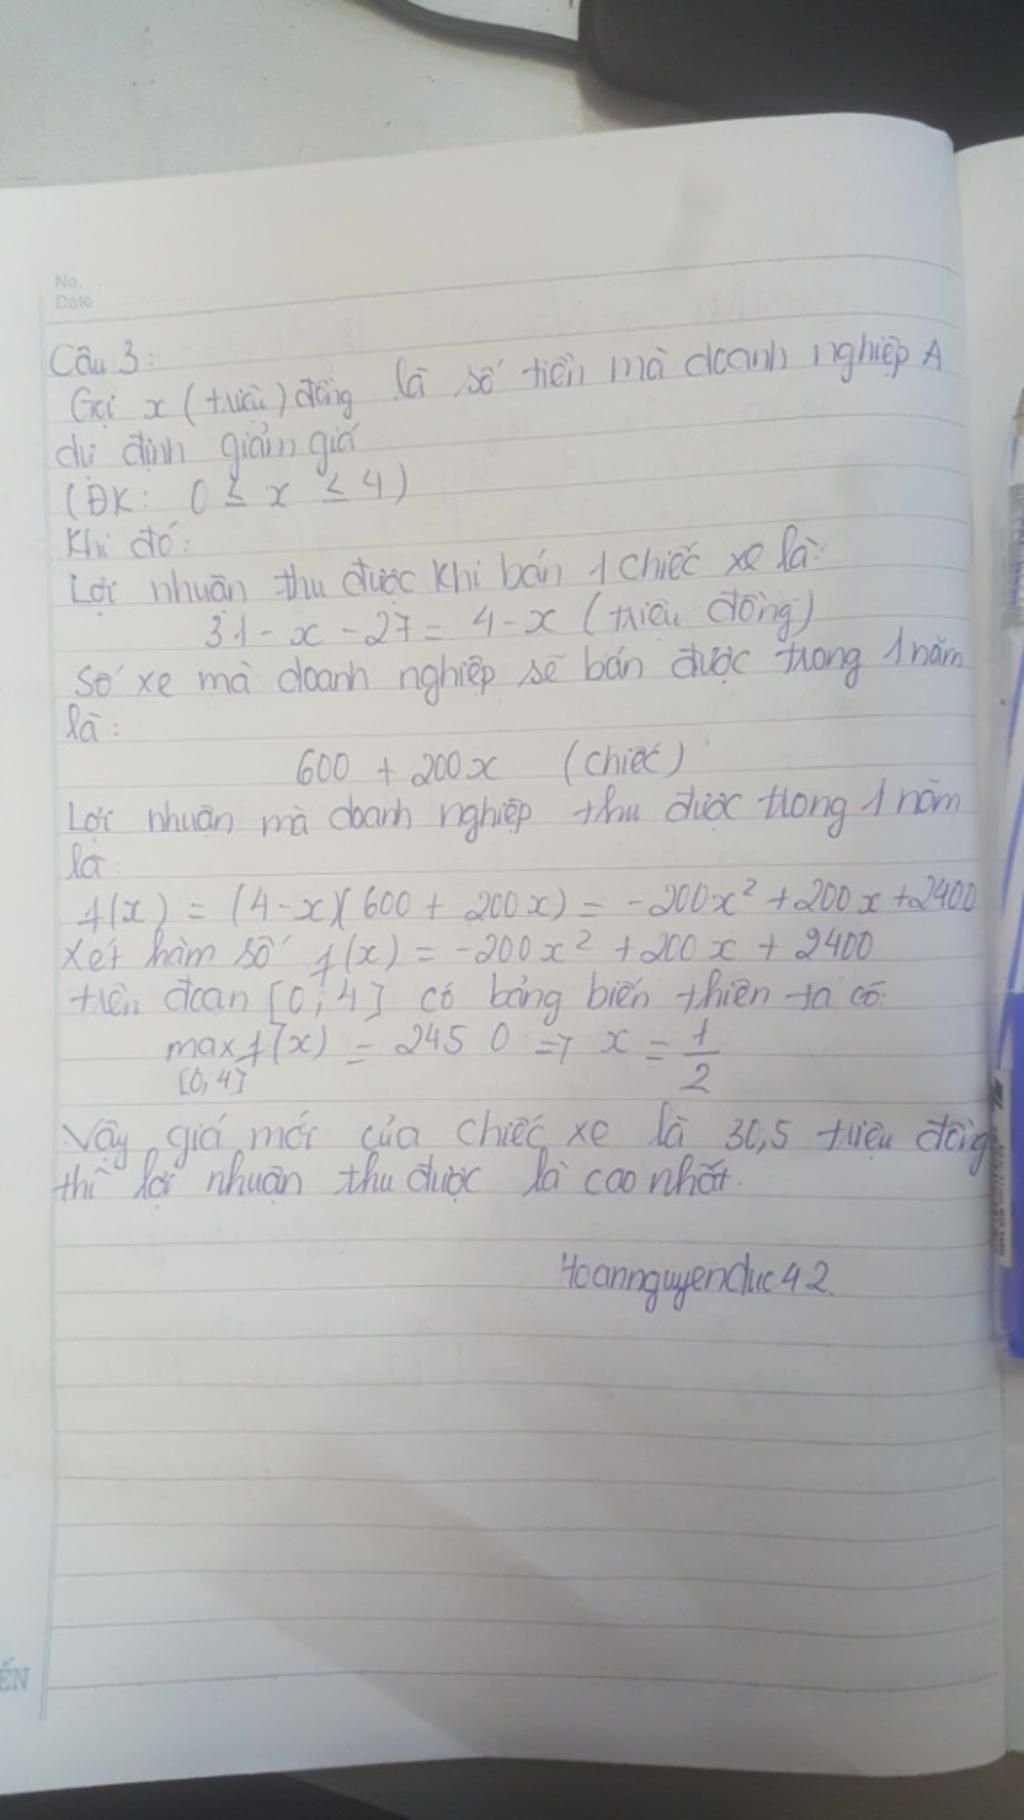 No.
Date
Câu 3:
Gọi x (triệu) đồng là số tiền mà doanh nghiệp A
dự định giảm giá
(ĐK: 0 ≤ x ≤ 4)
Khi đó:
Lợi nhuận thu được khi bán 1 chiếc xe là:
31 - x - 27 = 4 - x (triệu đồng)
Số xe mà doanh nghiệp sẽ bán được trong 1 năm
là:
600 + 200x (chiếc)
Lợi nhuận mà doanh nghiệp thu được trong 1 năm
là:
f(x) = (4-x)(600 + 200x) = -200x² + 200x + 2400
Xét hàm số f(x) = -200x² + 200x + 2400
trên đoạn [0; 4] có bảng biến thiên ta có:
max f(x) = 2450 => x = 1/2
[0; 4]
Vậy giá mới của chiếc xe là 30,5 triệu đồng
thì lợi nhuận thu được là cao nhất.
Hoannguyenduc42.
ẾN